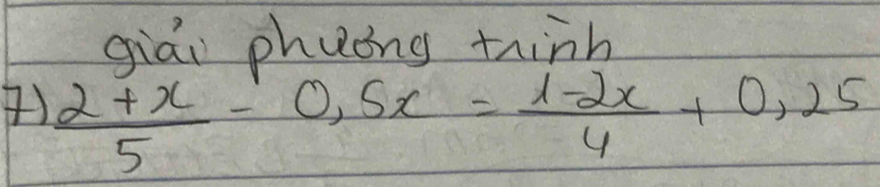 giải phương trình
7) \frac{2+x}{5} - 0,5x = \frac{1-2x}{4} + 0,25